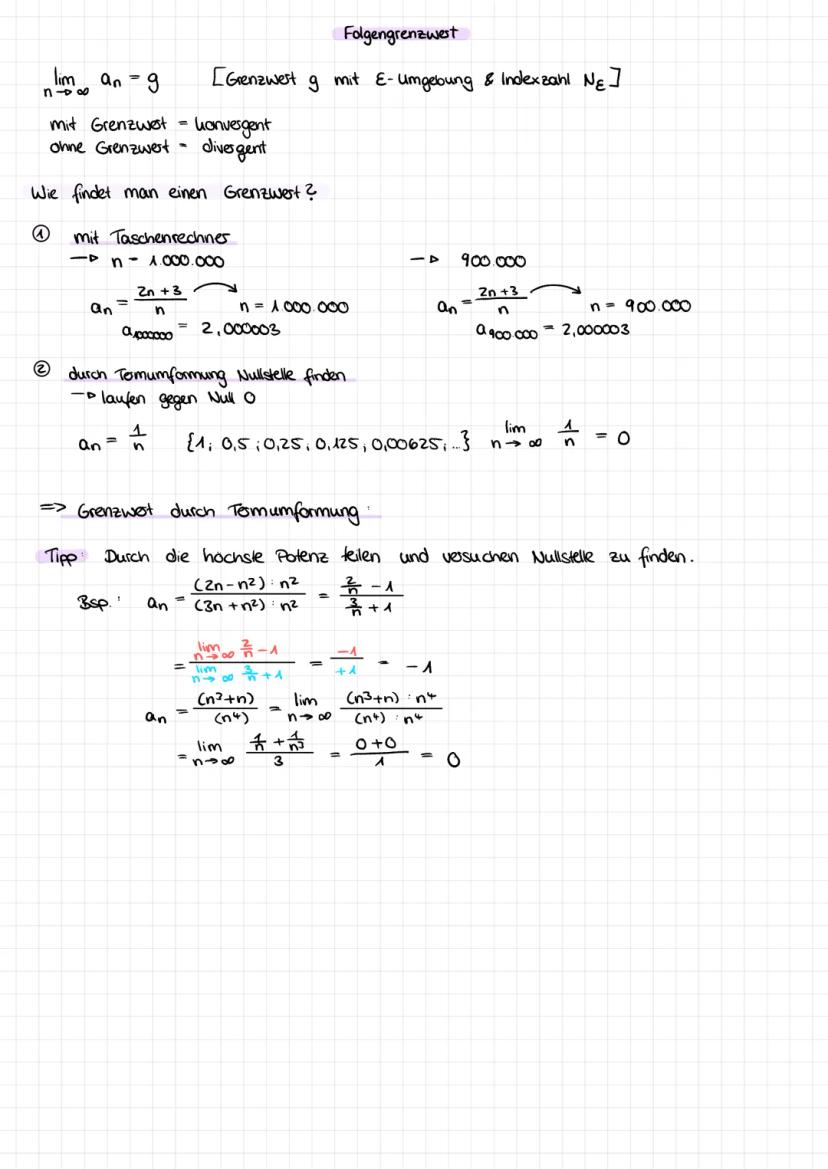 Folgengrenzwert
lim n→∞ an = g [Grenzwert g mit ε-Umgebung & Indexzahl Nε]
mit Grenzwert = konvergent
ohne Grenzwert = divergent
Wie findet man einen Grenzwert?
① mit Taschenrechner
→ n = 1.000.000 → 900.000
an = (2n+3)/n n = 1.000.000 an = (2n+3)/n n = 900.000
a1000000 = 2,000003 a900.000 = 2,000003
② durch Termumformung Nullstelle finden
→ laufen gegen Null 0
an = 1/n {1; 0,5; 0,25; 0,125; 0,00625; ...} lim n→∞ 1/n = 0
=> Grenzwert durch Termumformung:
Tipp: Durch die höchste Potenz teilen und versuchen Nullstelle zu finden.
Bsp.: an = ((2n-n²) : n²)/((3n+n²) : n²) = (2/n - 1)/(3/n + 1)
= (lim n→∞ 2/n - 1)/(lim n→∞ 3/n + 1) = -1/+1 = -1
an = (n³+n)/(n⁴) = lim n→∞ ((n³+n) : n⁴)/((n⁴) : n⁴)
= lim n→∞ (1/n + 1/n³)/3 = (0+0)/1 = 0